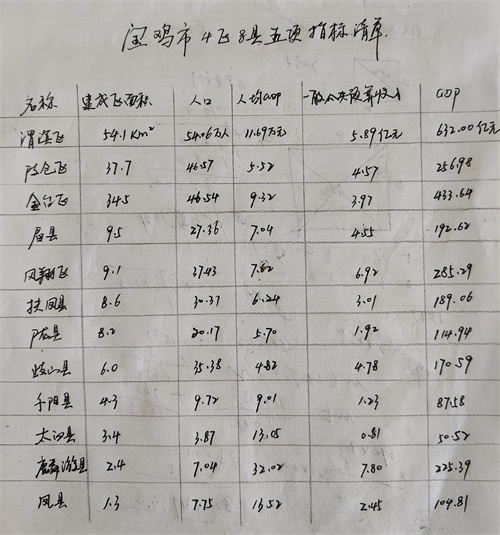 宝鸡市4区8县五项指标清单
名称 建成区面积 人口 人均GDP 一般公共预算收入 GDP
渭滨区 54.1Km² 54.06万人 11.69万元 5.89亿元 632.00亿元
陈仓区 37.7 46.57 5.52 4.57 256.98
金台区 34.5 46.54 9.32 3.97 433.64
眉县 9.5 27.36 7.04 4.55 192.62
凤翔区 9.1 37.43 7.62 6.92 285.29
扶风县 8.6 30.37 6.24 3.01 189.06
陇县 8.2 20.17 5.70 1.92 114.94
岐山县 6.0 35.38 4.82 4.78 170.59
千阳县 4.3 9.72 9.01 1.23 87.58
太白县 3.4 3.87 13.05 0.81 50.52
麟游县 2.4 7.04 32.02 7.80 225.39
凤县 1.3 7.75 13.52 2.45 104.81